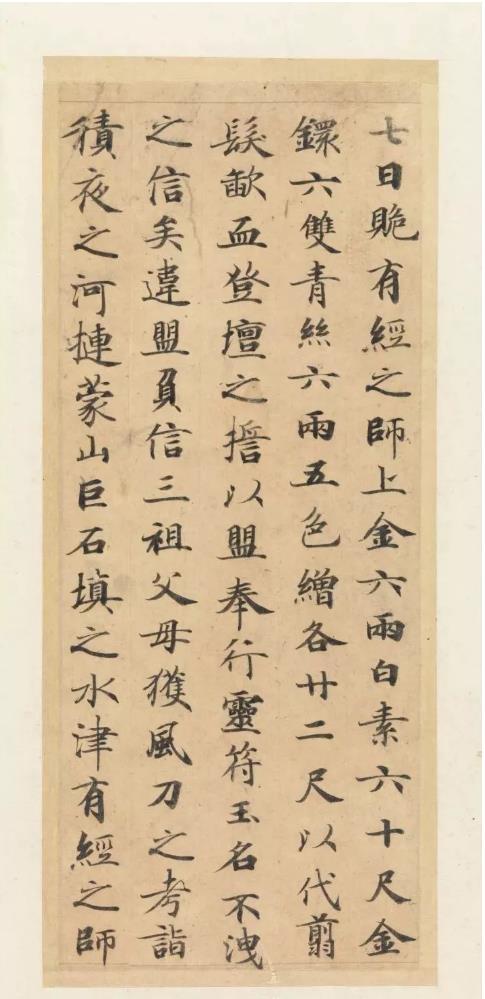 七日賝有經之師上金六兩白素六十尺金
鐶六雙青絲六兩五色繒各廿二尺以代翦
髮歃血登壇之誓以盟奉行靈符玉名不洩
之信矣違盟負信三祖父母獲風刀之考詣
積夜之河揵蒙山巨石填之水津有經之師